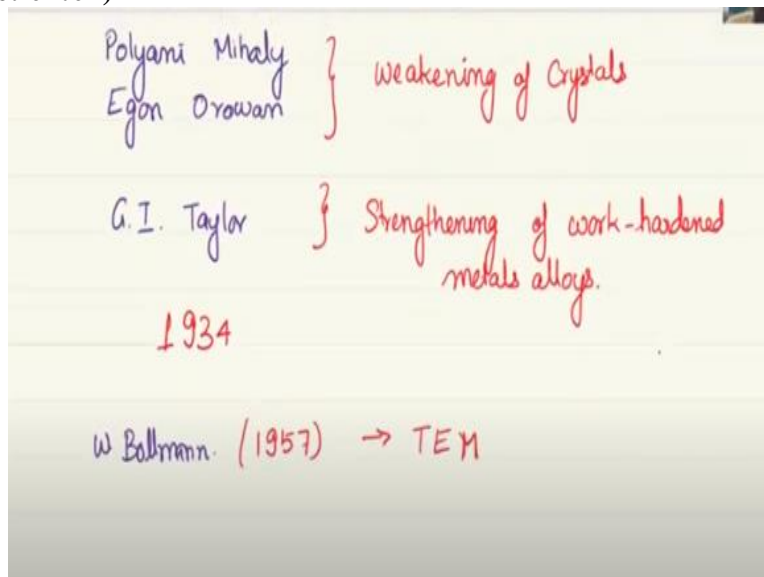 Polyani Mihaly
Egon Orowan
Weakening of Crystals
G.I. Taylor
Strengthening of work-hardened
metals alloys.
1934
W Bollmann. (1957) → TEM